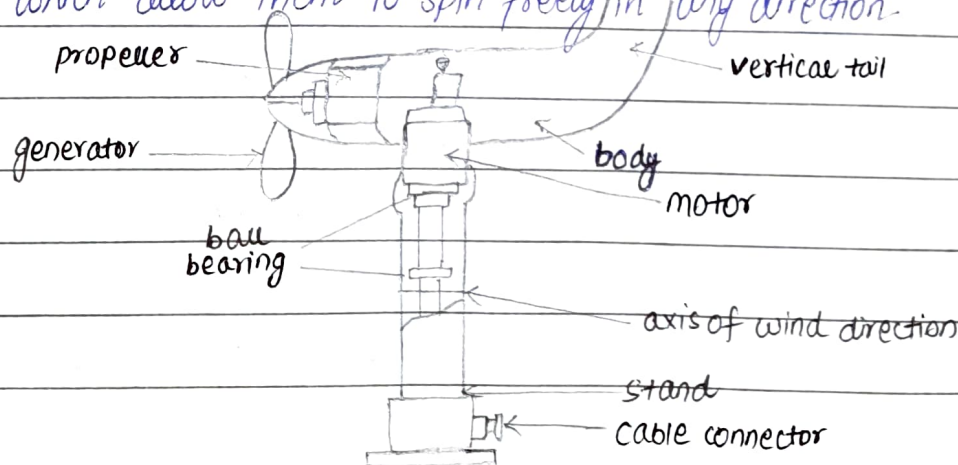 which allow them to spin freely in any direction.
propeller
vertical tail
generator
body
motor
ball
bearing
axis of wind direction
stand
cable connector